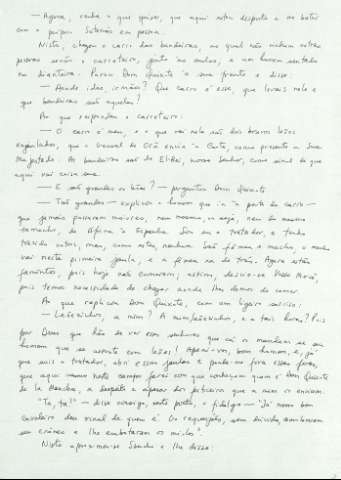 — Agora, venha o que vier, que aqui estou disposto a me bater com o próprio Satanás em pessoa.
Nisto, chegou o carro das bandeiras, no qual não vinham outras pessoas senão o carreteiro, junto às mulas, e um homem sentado na dianteira. Parou Dom Quixote à sua frente e disse:
— Aonde ides, irmãos? Que carro é esse, que levais nele e que bandeiras são aquelas?
Ao que respondeu o carreteiro:
— O carro é meu, e o que vai nele são dois bravos leões
enjaulados, que o General de Orã envia à Corte, como presente a Sua
Majestade. As bandeiras são de El-Rei, nosso Senhor, como sinal de que
aqui vai coisa sua.
— E são grandes os leões? — perguntou Dom Quixote
— Tão grandes — explicou o homem que ia à porta do carro —
que jamais passaram maiores, nem mesmo, ou seja, nem do mesmo
tamanho, da África à Espanha. Sou eu o tratador, e tenho
trazido outros, mas, como estes, nenhum. São fêmea e macho, o macho
vai nesta primeira jaula, e a fêmea na de trás. Agora estão
famintos, pois hoje não comeram; assim, desvie-se Vossa Mercê,
pois temos necessidade de chegar aonde lhes demos de comer.
Ao que replicou Dom Quixote, com um ligeiro sorriso:
— Leõezinhos, a mim? A mim leõezinhos, e a tais horas? Pois
por Deus que hão de ver esses senhores que cá os mandam se sou
homem que se assuste com leões! Apeai-vos, bom homem, e, já
que sois o tratador, abri essas jaulas e ponde-me fora essas feras,
que aqui mesmo neste campo farei com que conheçam quem é Dom Quixote
de la Mancha, a despeito e apesar dos feiticeiros que a mim os enviam.
"Tá, tá!" — disse consigo, neste ponto, o fidalgo — "Já nosso bom
cavaleiro deu sinal de quem é! Os requeijões, sem dúvida, amoleceram-lhe
o crânio e lhe embotaram os miolos".
Nisto aproximou-se Sancho e lhe disse: